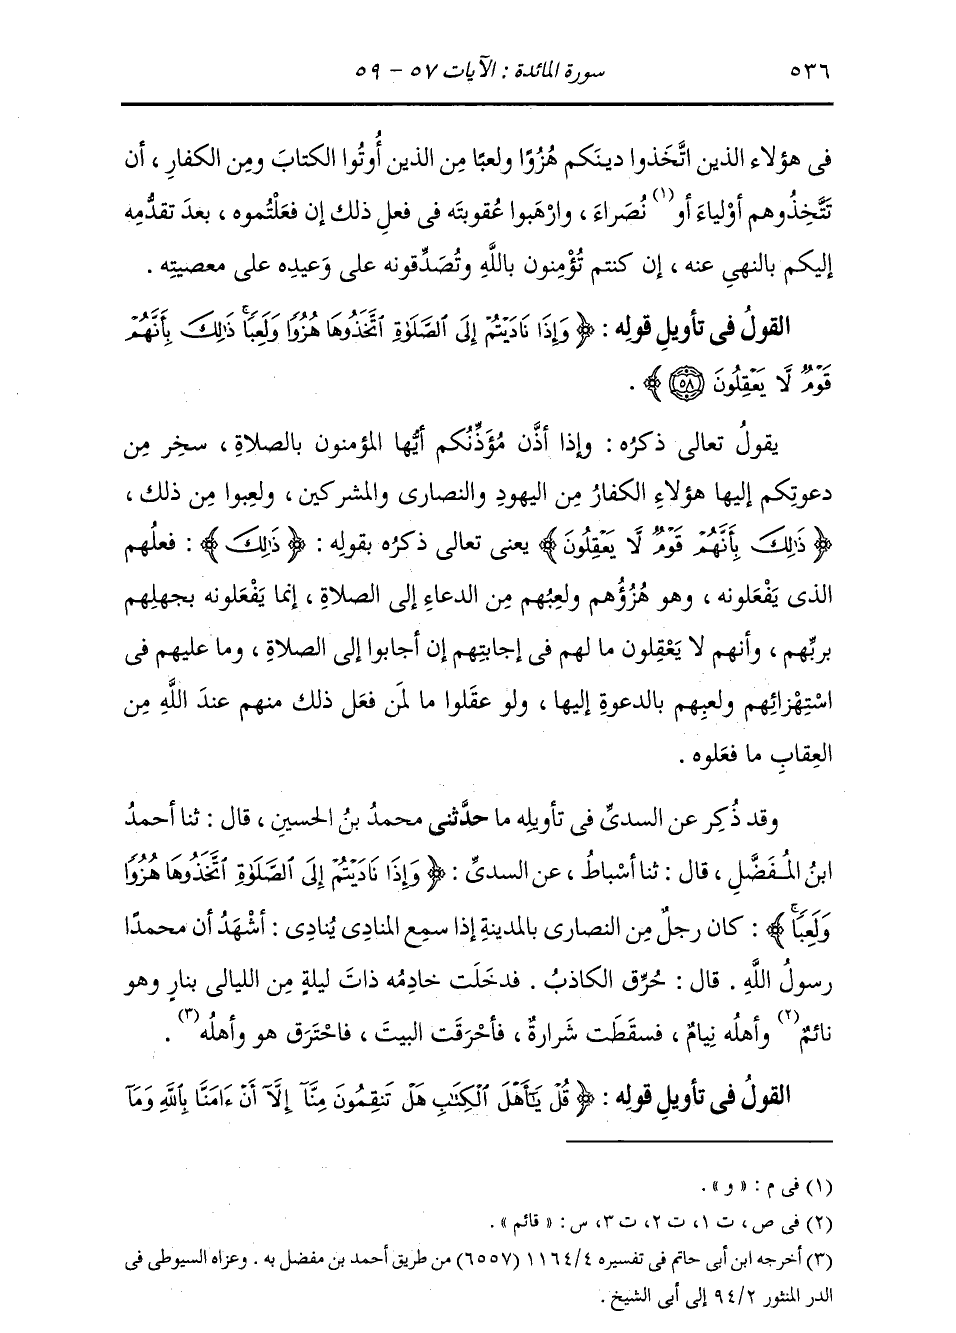 ٥٣٦ سورة المائدة : الآيات ٥٧ - ٥٩
فى هؤلاء الذين اتَّخَذوا دينَكم هُزُوًا ولعبًا مِن الذين أُوتُوا الكتابَ ومِن الكفارِ ، أن
تَتَّخِذُوهم أوْلياءَ أو(١) نُصَراءَ ، وارْهَبوا عُقوبتَه فى فعلِ ذلك إن فعَلْتُموه ، بعدَ تقدُّمِه
إليكم بالنهيِ عنه ، إن كنتم تُؤْمِنون باللَّهِ وتُصَدِّقونه على وَعيدِه على معصيتِه .
القولُ فى تأويلِ قولِه : ﴿ وَإِذَا نَادَيْتُمْ إِلَى ٱلصَّلَوٰةِ ٱتَّخَذُوهَا هُزُوًا وَلَعِبًاۚ ذَٰلِكَ بِأَنَّهُمْ
قَوْمٌ لَّا يَعْقِلُونَ ٥٨ ﴾ .
يقولُ تعالى ذكرُه : وإذا أذَّن مُؤَذِّنُكم أيُّها المؤمنون بالصلاةِ ، سخِر مِن
دعوتِكم إليها هؤلاءِ الكفارُ مِن اليهودِ والنصارى والمشركين ، ولعِبوا مِن ذلك ،
﴿ ذَٰلِكَ بِأَنَّهُمْ قَوْمٌ لَّا يَعْقِلُونَ ﴾ يعنى تعالى ذكرُه بقولِه : ﴿ ذَٰلِكَ ﴾ : فعلُهم
الذى يَفْعَلونه ، وهو هُزُؤُهم ولعِبُهم مِن الدعاءِ إلى الصلاةِ ، إنما يَفْعَلونه بجهلِهم
بربِّهم ، وأنهم لا يَعْقِلون ما لهم فى إجابتِهم إن أجابوا إلى الصلاةِ ، وما عليهم فى
اسْتِهْزائِهم ولعبِهم بالدعوةِ إليها ، ولو عقَلوا ما لمَن فعَل ذلك منهم عندَ اللَّهِ مِن
العِقابِ ما فعَلوه .
وقد ذُكِر عن السدىِّ فى تأويلِه ما حدَّثنى محمدُ بنُ الحسينِ ، قال : ثنا أحمدُ
ابنُ المُفَضَّلِ ، قال : ثنا أسْباطُ ، عن السدىِّ : ﴿ وَإِذَا نَادَيْتُمْ إِلَى ٱلصَّلَوٰةِ ٱتَّخَذُوهَا هُزُوًا
وَلَعِبًاۚ ﴾ : كان رجلٌ مِن النصارى بالمدينةِ إذا سمِع المنادى يُنادى : أشْهَدُ أن محمدًا
رسولُ اللَّهِ . قال : حُرِّق الكاذبُ . فدخَلَت خادِمُه ذاتَ ليلةٍ مِن الليالى بنارٍ وهو
نائمٌ(٢) وأهلُه نِيامٌ ، فسقَطَت شَرارةٌ ، فأحْرَقَت البيتَ ، فاحْتَرَق هو وأهلُه(٣) .
القولُ فى تأويلِ قولِه : ﴿ قُلْ يَٰٓأَهْلَ ٱلْكِتَٰبِ هَلْ تَنقِمُونَ مِنَّآ إِلَّآ أَنْ ءَامَنَّا بِٱللَّهِ وَمَآ
(١) فى م : « و » .
(٢) فى ص ، ت ١، ت ٢، ت ٣، س : « قائم » .
(٣) أخرجه ابن أبى حاتم فى تفسيره ١١٦٤/٤ (٦٥٥٧) من طريق أحمد بن مفضل به . وعزاه السيوطى فى
الدر المنثور ٩٤/٢ إلى أبى الشيخ .